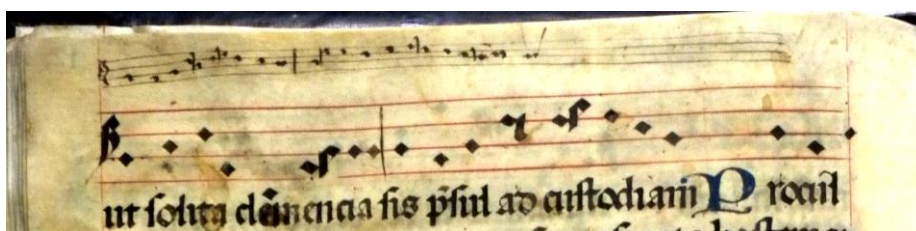 ut solita clemencia sis p̄sul ad custodiam Procul